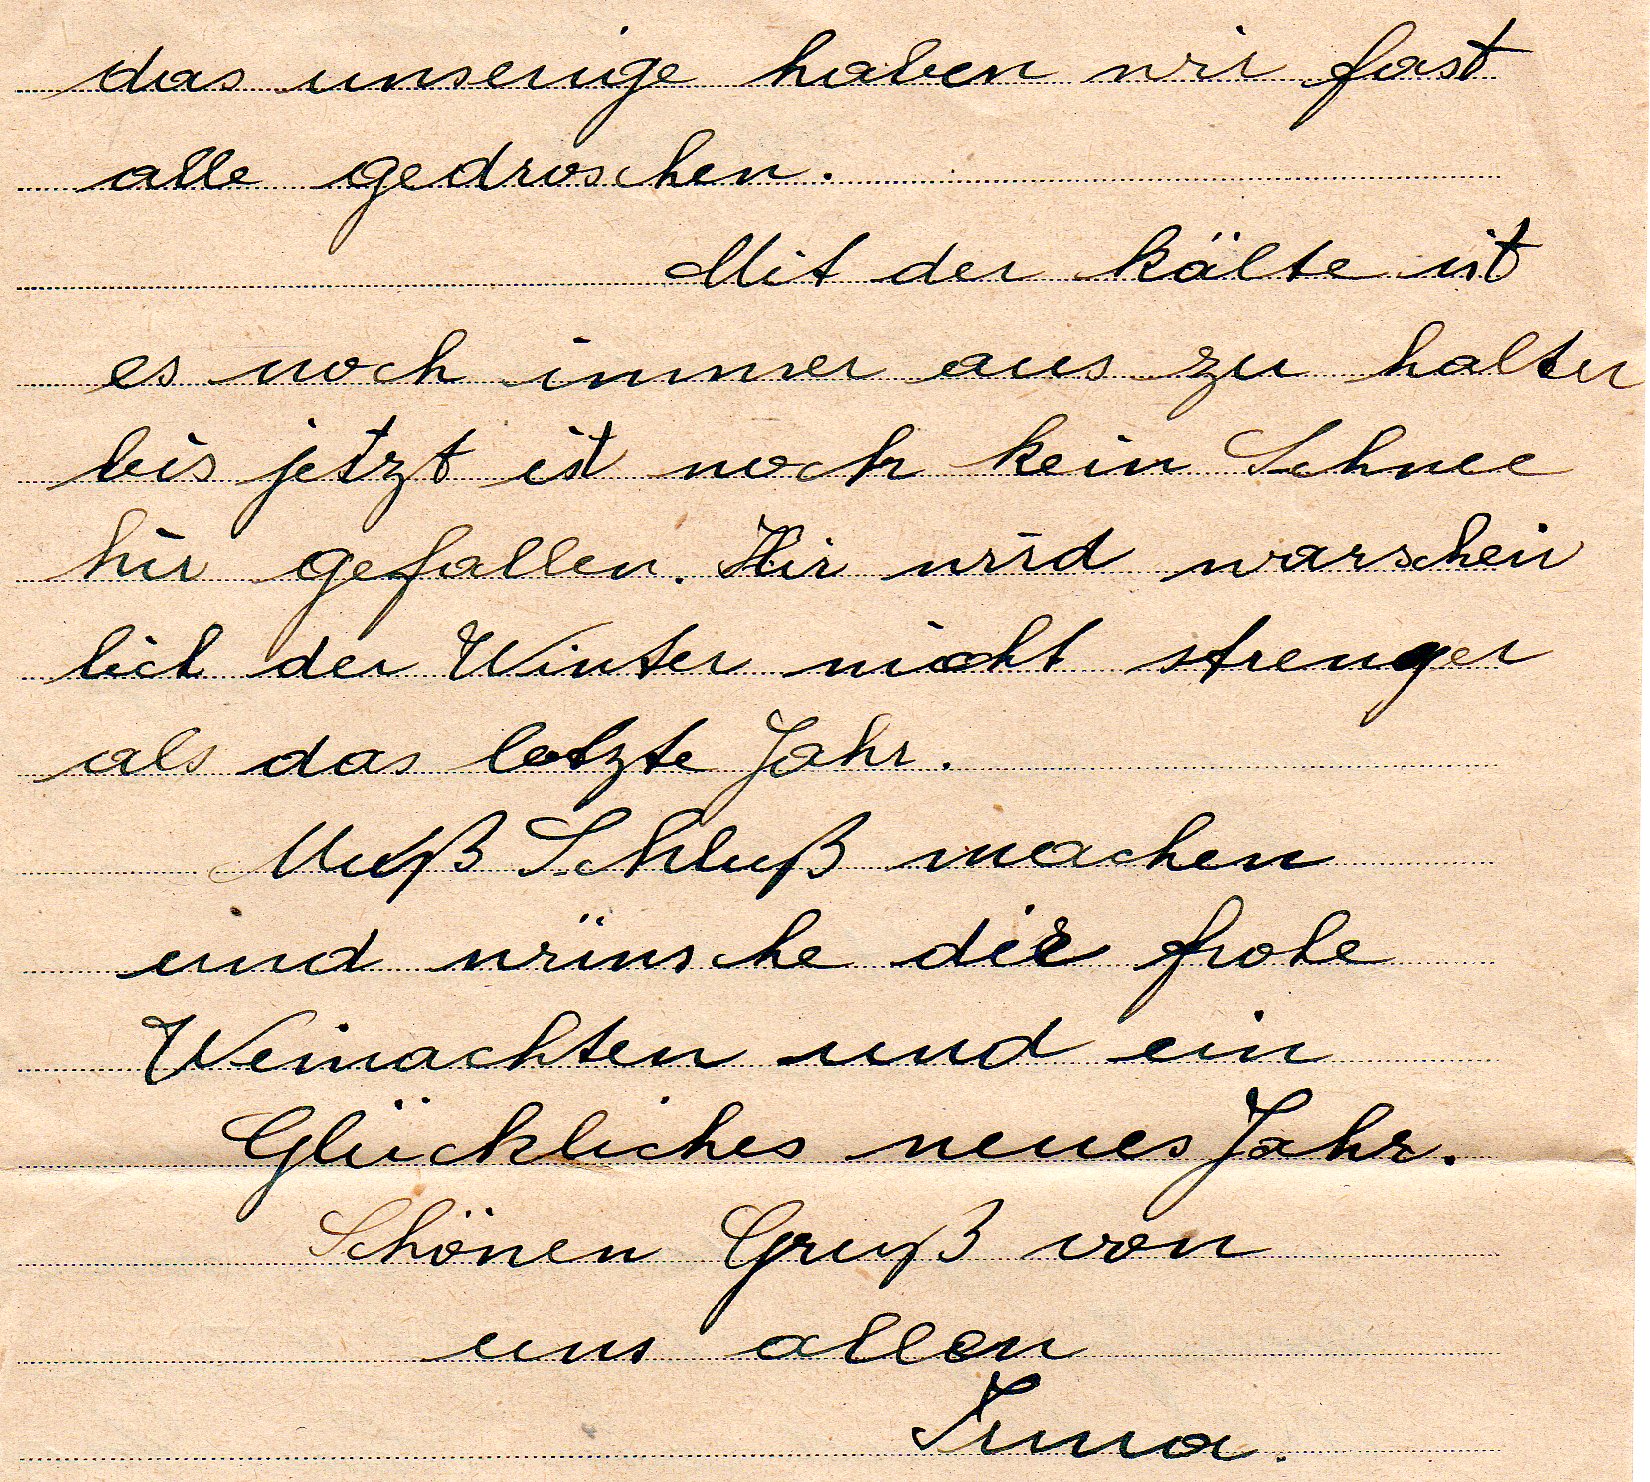 das unserige haben wir fast
alle gedroschen.
Mit der kälte ist
es noch immer aus zu halten
bis jetzt ist noch kein Schnee
hir gefallen. Hir wird warschein
lich der Winter nicht strenger
als das letzte Jahr.
Muß Schluß machen
und wünsche dir frohe
Weinachten und ein
Glückliches neues Jahr.
Schönen Gruß von
uns allen
Irma.